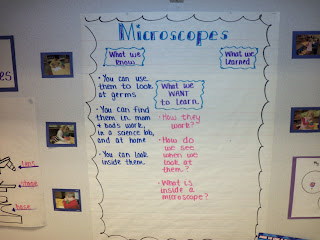 Microscopes
What we
know
• You can use
them to look
at germs
• You can find
them in mom
+ dad's work,
in a science lab,
and at home
• You can look
inside them.
What we
WANT
to learn
• How they
work?
• How do
we see
when we
look at
them?
• What is
inside a
microscope?
What we
Learned
lens
stage
base